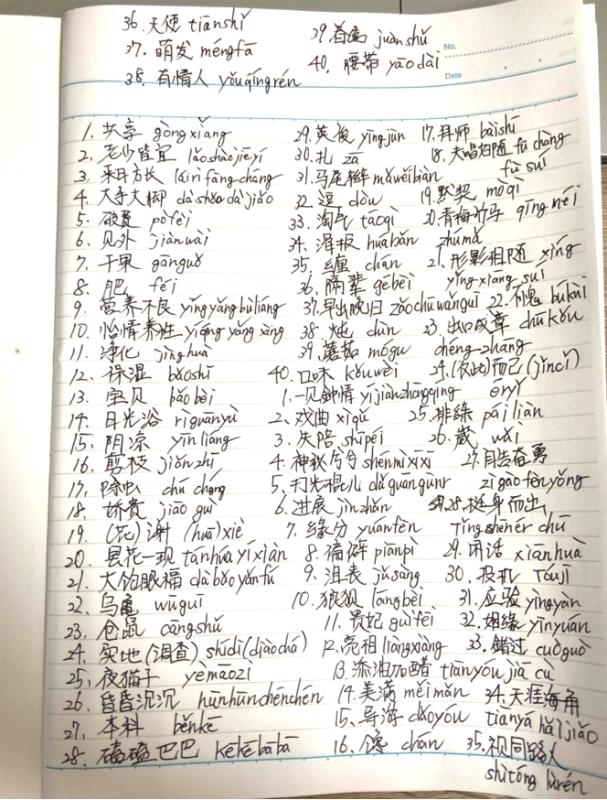 36. 天使 tiānshǐ
37. 萌发 méngfā
38. 有情人 yǒuqíngrén
39. 眷属 juànshǔ
40. 腰带 yāodài
No.
Date
1. 共享 gòngxiǎng
2. 老少皆宜 lǎoshàojiēyí
3. 来日方长 láirìfāngcháng
4. 大手大脚 dàshǒudàjiǎo
5. 破费 pòfèi
6. 见外 jiànwài
7. 干果 gānguǒ
8. 肥 féi
9. 营养不良 yíngyǎngbùliáng
10. 怡情养性 yíqíngyǎngxìng
11. 净化 jìnghuà
12. 保湿 bǎoshī
13. 宝贝 bǎobèi
14. 日光浴 rìguāngyù
15. 阴凉 yīnliáng
16. 剪枝 jiǎnzhī
17. 除虫 chú chóng
18. 娇贵 jiāo guì
19. (花)谢 (huā)xiè
20. 昙花一现 tánhuāyíxiàn
21. 大饱眼福 dàbǎoyǎnfú
22. 乌龟 wūguī
23. 仓鼠 cāngshǔ
24. 实地(调查) shídì(diàochá)
25. 夜猫子 yèmāozi
26. 昏昏沉沉 hūnhūnchénchén
27. 本科 běnkē
28. 磕磕巴巴 kēkēbābā
29. 英俊 yīngjùn
30. 扎 zā
31. 马尾辫 mǎwěibiàn
32. 逗 dòu
33. 淘气 táoqì
34. 滑板 huábǎn
35. 缠 chán
36. 隔辈 gébèi
37. 早出晚归 zǎochūwǎnguī
38. 炖 dùn
39. 蘑菇 mógu
40. 口味 kǒuwèi
1. 一见钟情 yíjiànzhōngqíng
2. 戏曲 xìqǔ
3. 失陪 shīpéi
4. 神秘兮兮 shénmìxīxī
5. 打光棍儿 dǎguānggùnr
6. 进展 jìnzhǎn
7. 缘分 yuánfèn
8. 偏僻 piānpì
9. 沮丧 jǔsàng
10. 狼狈 lángbèi
11. 贵妃 guìfēi
12. 亮相 liàngxiàng
13. 添油加醋 tiānyóujiācù
14. 美满 měimǎn
15. 导游 dǎoyóu
16. 馋 chán
17. 拜师 bàishī
18. 夫唱妇随 fū chàng fù suí
19. 默契 mòqì
20. 青梅竹马 qīng méi zhúmǎ
21. 形影相随 xíng yǐng xiāng suí
22. 不愧 búkuì
23. 出口成章 chū kǒu chéng zhāng
24. (仅此)而已 (jǐncǐ) éryǐ
25. 排练 páiliàn
26. 崴 wǎi
27. 自告奋勇 zì gào fèn yǒng
28. 挺身而出 tǐngshēn ér chū
29. 闲话 xiánhuà
30. 投机 tóujī
31. 应验 yìngyàn
32. 姻缘 yīnyuán
33. 错过 cuòguò
34. 天涯海角 tiānyá hǎijiǎo
35. 视同路人 shìtóng lùrén